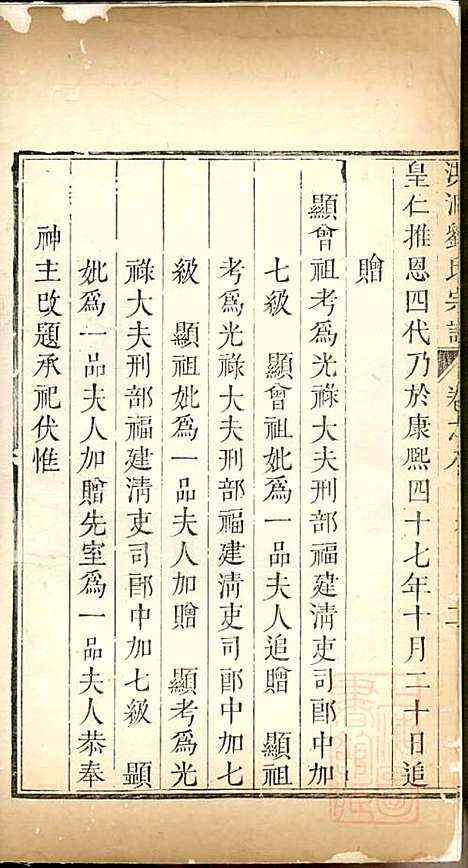 劉氏宗譜
皇仁推恩四代乃於康熙四十七年十月二十日追
贈
顯曾祖考為光祿大夫刑部福建清吏司郎中加
七級 顯曾祖妣為一品夫人追贈 顯祖
考為光祿大夫刑部福建清吏司郎中加七
級 顯祖妣為一品夫人加贈 顯考為光
祿大夫刑部福建清吏司郎中加七級 顯
妣為一品夫人加贈先室為一品夫人恭奉
神主改題承祀伏惟